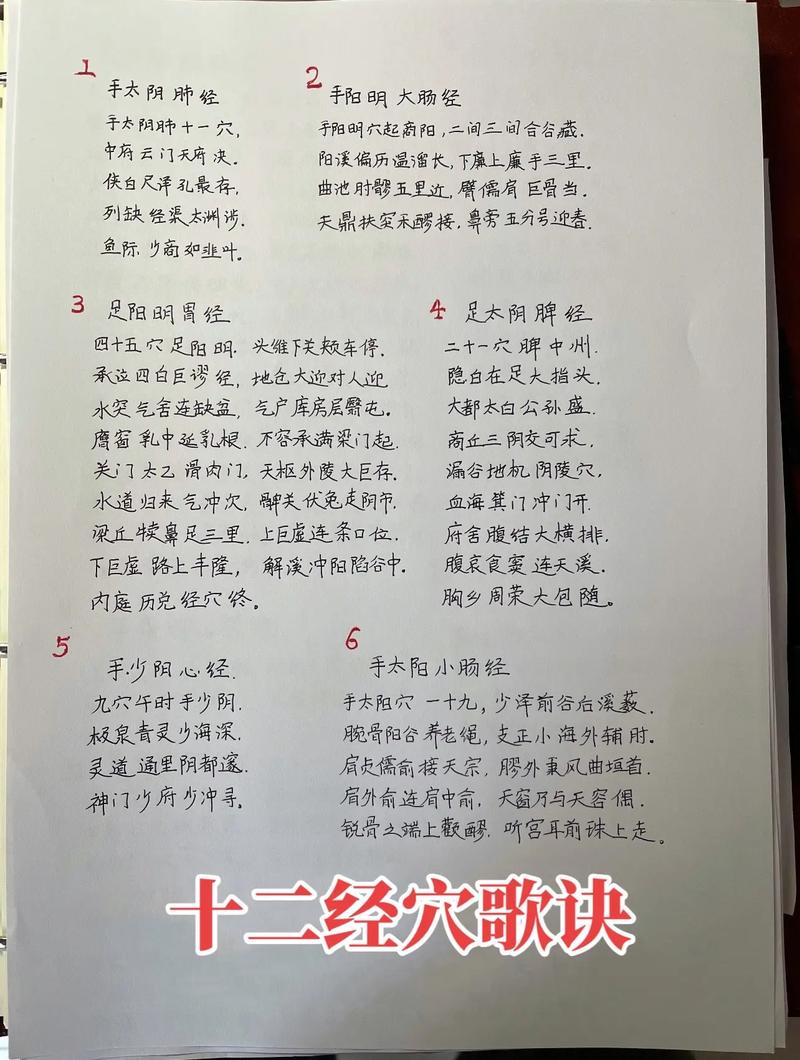 1
手太阴肺经
手太阴肺十一穴,
中府云门天府决.
侠白尺泽孔最存,
列缺经渠太渊涉.
鱼际少商如韭叶.
2
手阳明大肠经
手阳明穴起商阳,二间三间合谷藏.
阳溪偏历温溜长,下廉上廉手三里.
曲池肘髎五里近,臂儒肩巨骨当.
天鼎扶突禾髎接,鼻旁五分号迎春.
3
足阳明胃经
四十五穴足阳明.头维下关颊车停.
承泣四白巨谬经,地仓大迎对人迎
水突气舍连缺盆,气户库房层翳屯.
膺窗乳中延乳根.不容承满梁门起.
关门太乙滑肉门,天枢外陵大巨存.
水道归来气冲次,髀关伏兔走阴市.
梁丘犊鼻足三里.上巨虚连条口位.
下巨虚路上丰隆,解溪冲阳陷谷中.
内庭历兑经穴终。
4
足太阴脾经
二十一穴脾中州.
隐白在足大指头.
大都太白公孙盛.
商丘三阴交可求.
漏谷地机阴陵穴,
血海箕门冲门开.
府舍腹结大横排.
腹哀食窦连天溪.
胸乡周荣大包随。
5
手少阴心经.
九穴午时手少阴.
极泉青灵少海深.
灵道通里阴都邃.
神门少府少冲寻。
6
手太阳小肠经
手太阳穴一十九,少泽前谷后溪薮.
腕骨阳谷养老绳,支正小海外辅肘.
肩贞儒俞接天宗,膠外秉风曲垣首.
肩外俞连肩中俞,天窗乃与天容偶.
锐骨之端上颧醪.听宫耳前珠上走。
十二经穴歌诀